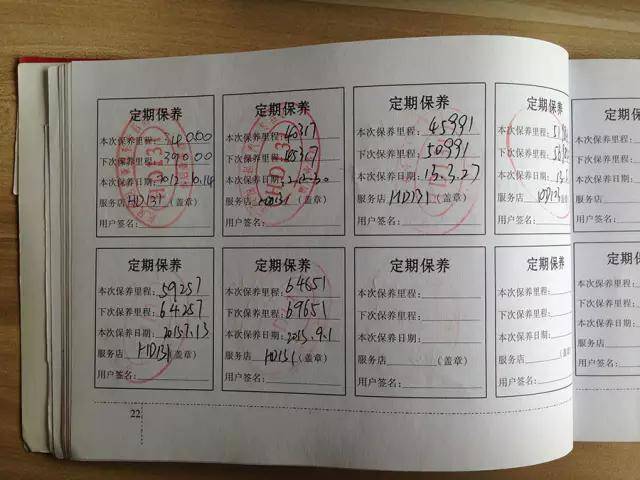 定期保养
本次保养里程: 34000
下次保养里程: 39000
本次保养日期: 2012.10.14
服务店 HD131 (盖章)
用户签名:
定期保养
本次保养里程: 40317
下次保养里程: 45317
本次保养日期:
服务店 HD131 (盖章)
用户签名:
定期保养
本次保养里程: 45991
下次保养里程: 50991
本次保养日期: 13.3.27
服务店 HD131 (盖章)
用户签名:
定期保养
本次保养里程:
下次保养里程:
本次保养日期:
服务店
用户签名:
定期保养
本次保养
下次保养
本次保养
服务店
用户签名
定期保养
本次保养里程: 59257
下次保养里程: 64257
本次保养日期: 2013.7.13
服务店 HD131 (盖章)
用户签名:
定期保养
本次保养里程: 64651
下次保养里程: 69651
本次保养日期: 2013.9.1
服务店 HD131 (盖章)
用户签名:
定期保养
本次保养里程:
下次保养里程:
本次保养日期:
服务店 (盖章)
用户签名:
定期保养
本次保养里程:
下次保养里程:
本次保养日期:
服务店
用户签名:
定期保养
本次保养
下次保养
本次保养
服务店
用户签名
22